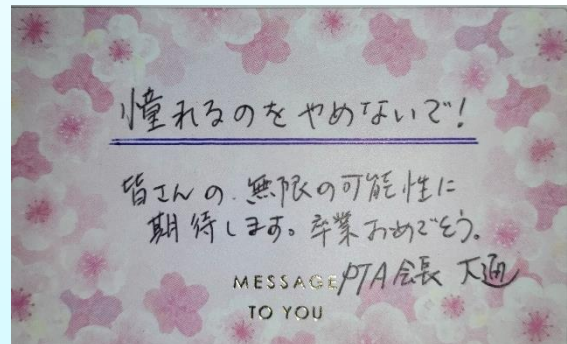 憧れるのをやめないで!
皆さんの無限の可能性に
期待します。卒業おめでとう。
MESSAGE PTA会長 大通
TO YOU